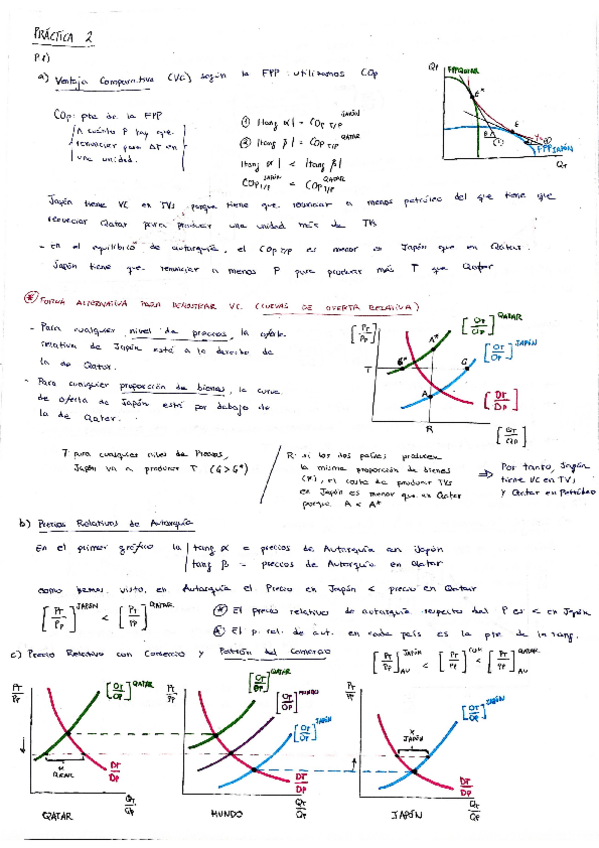 PRÁCTICA 2
P1)
a) Ventaja Comparativa (VC) según la FPP utilizamos COp
COp: pte de la FPP
A cuánto P hay que
renunciar para ΔT en
una unidad.
① |tang α| = COp T/P JAPÓN
② |tang β| = COp T/P QATAR
|tang α| < |tang β|
COp T/P JAPÓN < COp T/P QATAR
QP
FPP QATAR
E*
E
FPP JAPÓN
QT
Japón tiene VC en TVs, porque tiene que renunciar a menos petróleo del que tiene que
renunciar Qatar para producir una unidad más de TVs
- En el equilibrio de autarquía, el COp T/P es menor en Japón que en Qatar.
Japón tiene que renunciar a menos P para producir más T que Qatar
* FORMA ALTERNATIVA PARA DEMOSTRAR VC (CURVAS DE OFERTA RELATIVA)
- Para cualquier nivel de precios, la oferta
relativa de Japón está a la derecha de
la de Qatar.
- Para cualquier proporción de bienes, la curva
de oferta de Japón está por debajo de
la de Qatar.
[PT/PP]
[OT/OP] QATAR
[OT/OP] JAPÓN
A*
G*
G
T
A
[DT/DP]
R
[QT/QP]
T para cualquier nivel de Precios,
Japón va a producir T (G>G*)
R: si los dos países producen
la misma proporción de bienes
(R), el coste de producir TVs
en Japón es menor que en Qatar
porque A < A*
⇒ Por tanto, Japón
tiene VC en TVs
y Qatar en Petróleo
b) Precios Relativos de Autarquía
En el primer gráfico la |tang α = precios de Autarquía en Japón
|tang β = precios de Autarquía en Qatar
como hemos visto, en Autarquía el Precio en Japón < precio en Qatar
[PT/PP] JAPÓN < [PT/PP] QATAR
* El precio relativo de autarquía respecto del P es < en Japón
El p. rel. de aut. en cada país es la pte. de la tang.
c) Precio Relativo con Comercio y Patrón del Comercio
[PT/PP] JAPÓN AU < [PT/PP] < [PT/PP] QATAR AU
PT/PP
[OT/OP] QATAR
M
QATAR
DT/DP
QT/QP
QATAR
PT/PP
[OT/OP] QATAR
[OT/OP] MUNDO
[OT/OP] JAPÓN
DT/DP
QT/QP
MUNDO
PT/PP
[OT/OP] JAPÓN
X
JAPÓN
DT/DP
QT/QP
JAPÓN